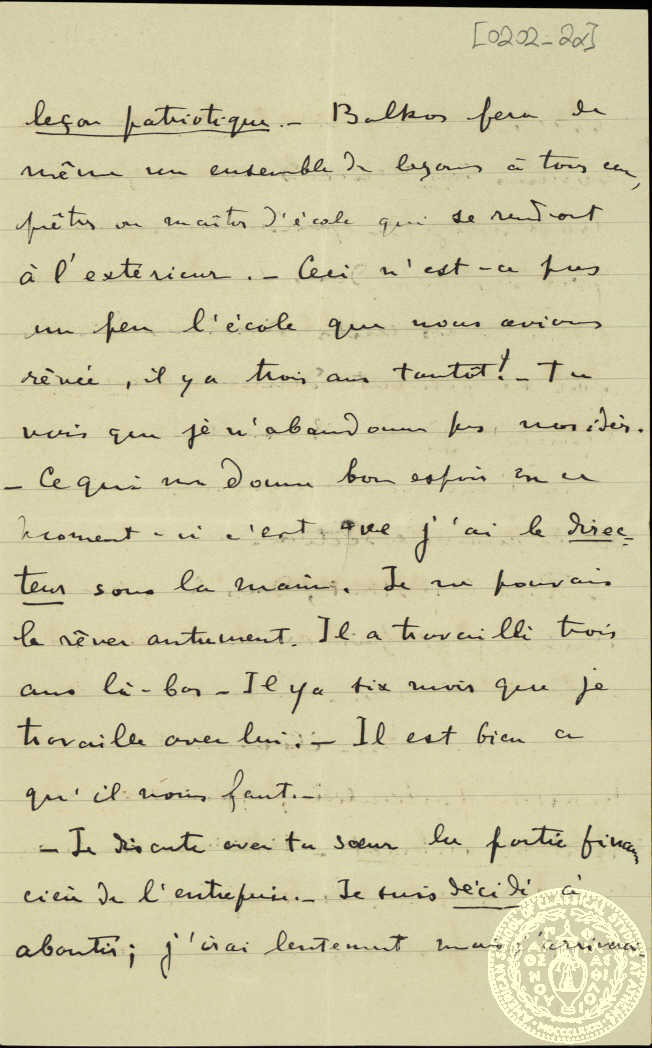 [0202-2α]
leçon patriotique. – Balkos fera de
même un ensemble de leçons à tous ceux,
prêtres ou maîtres d'école qui se rendront
à l'extérieur. – Ceci n'est-ce pas
un peu l'école que nous avions
rêvée, il y a trois ans tantôt! – Tu
vois que je n'abandonne pas nos idées.
– Ce qui me donne bon espoir en ce
moment-ci c'est que j'ai le direc-
teur sous la main. Je ne pouvais
le rêver autrement. Il a travaillé trois
ans là-bas – Il y a six mois que je
travaille avec lui. – Il est bien ce
qu'il nous faut. –
– Je discute avec ta sœur la partie finan
cière de l'entreprise. – Je suis décidé à
aboutir; j'irai lentement mais j'arriverai.
AMERICAN SCHOOL OF CLASSICAL STUDIES AT ATHENS
MDCCCLXXXI